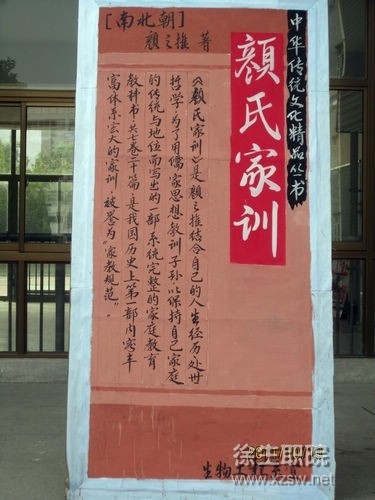 中华传统文化精品丛书
顏氏家训
[南北朝]
颜之推 著
《颜氏家训》是颜之推结合自己的人生经历处世
哲学为了用儒家思想教训子孙以保持自己家庭
的传统与地位而写出的一部系统完整的家庭教育
教科书 共七卷二十篇 是我国历史上第一部内容丰
富体系宏大的家训 被誉为"家教规范"。
生物工程
www.xzsw.net